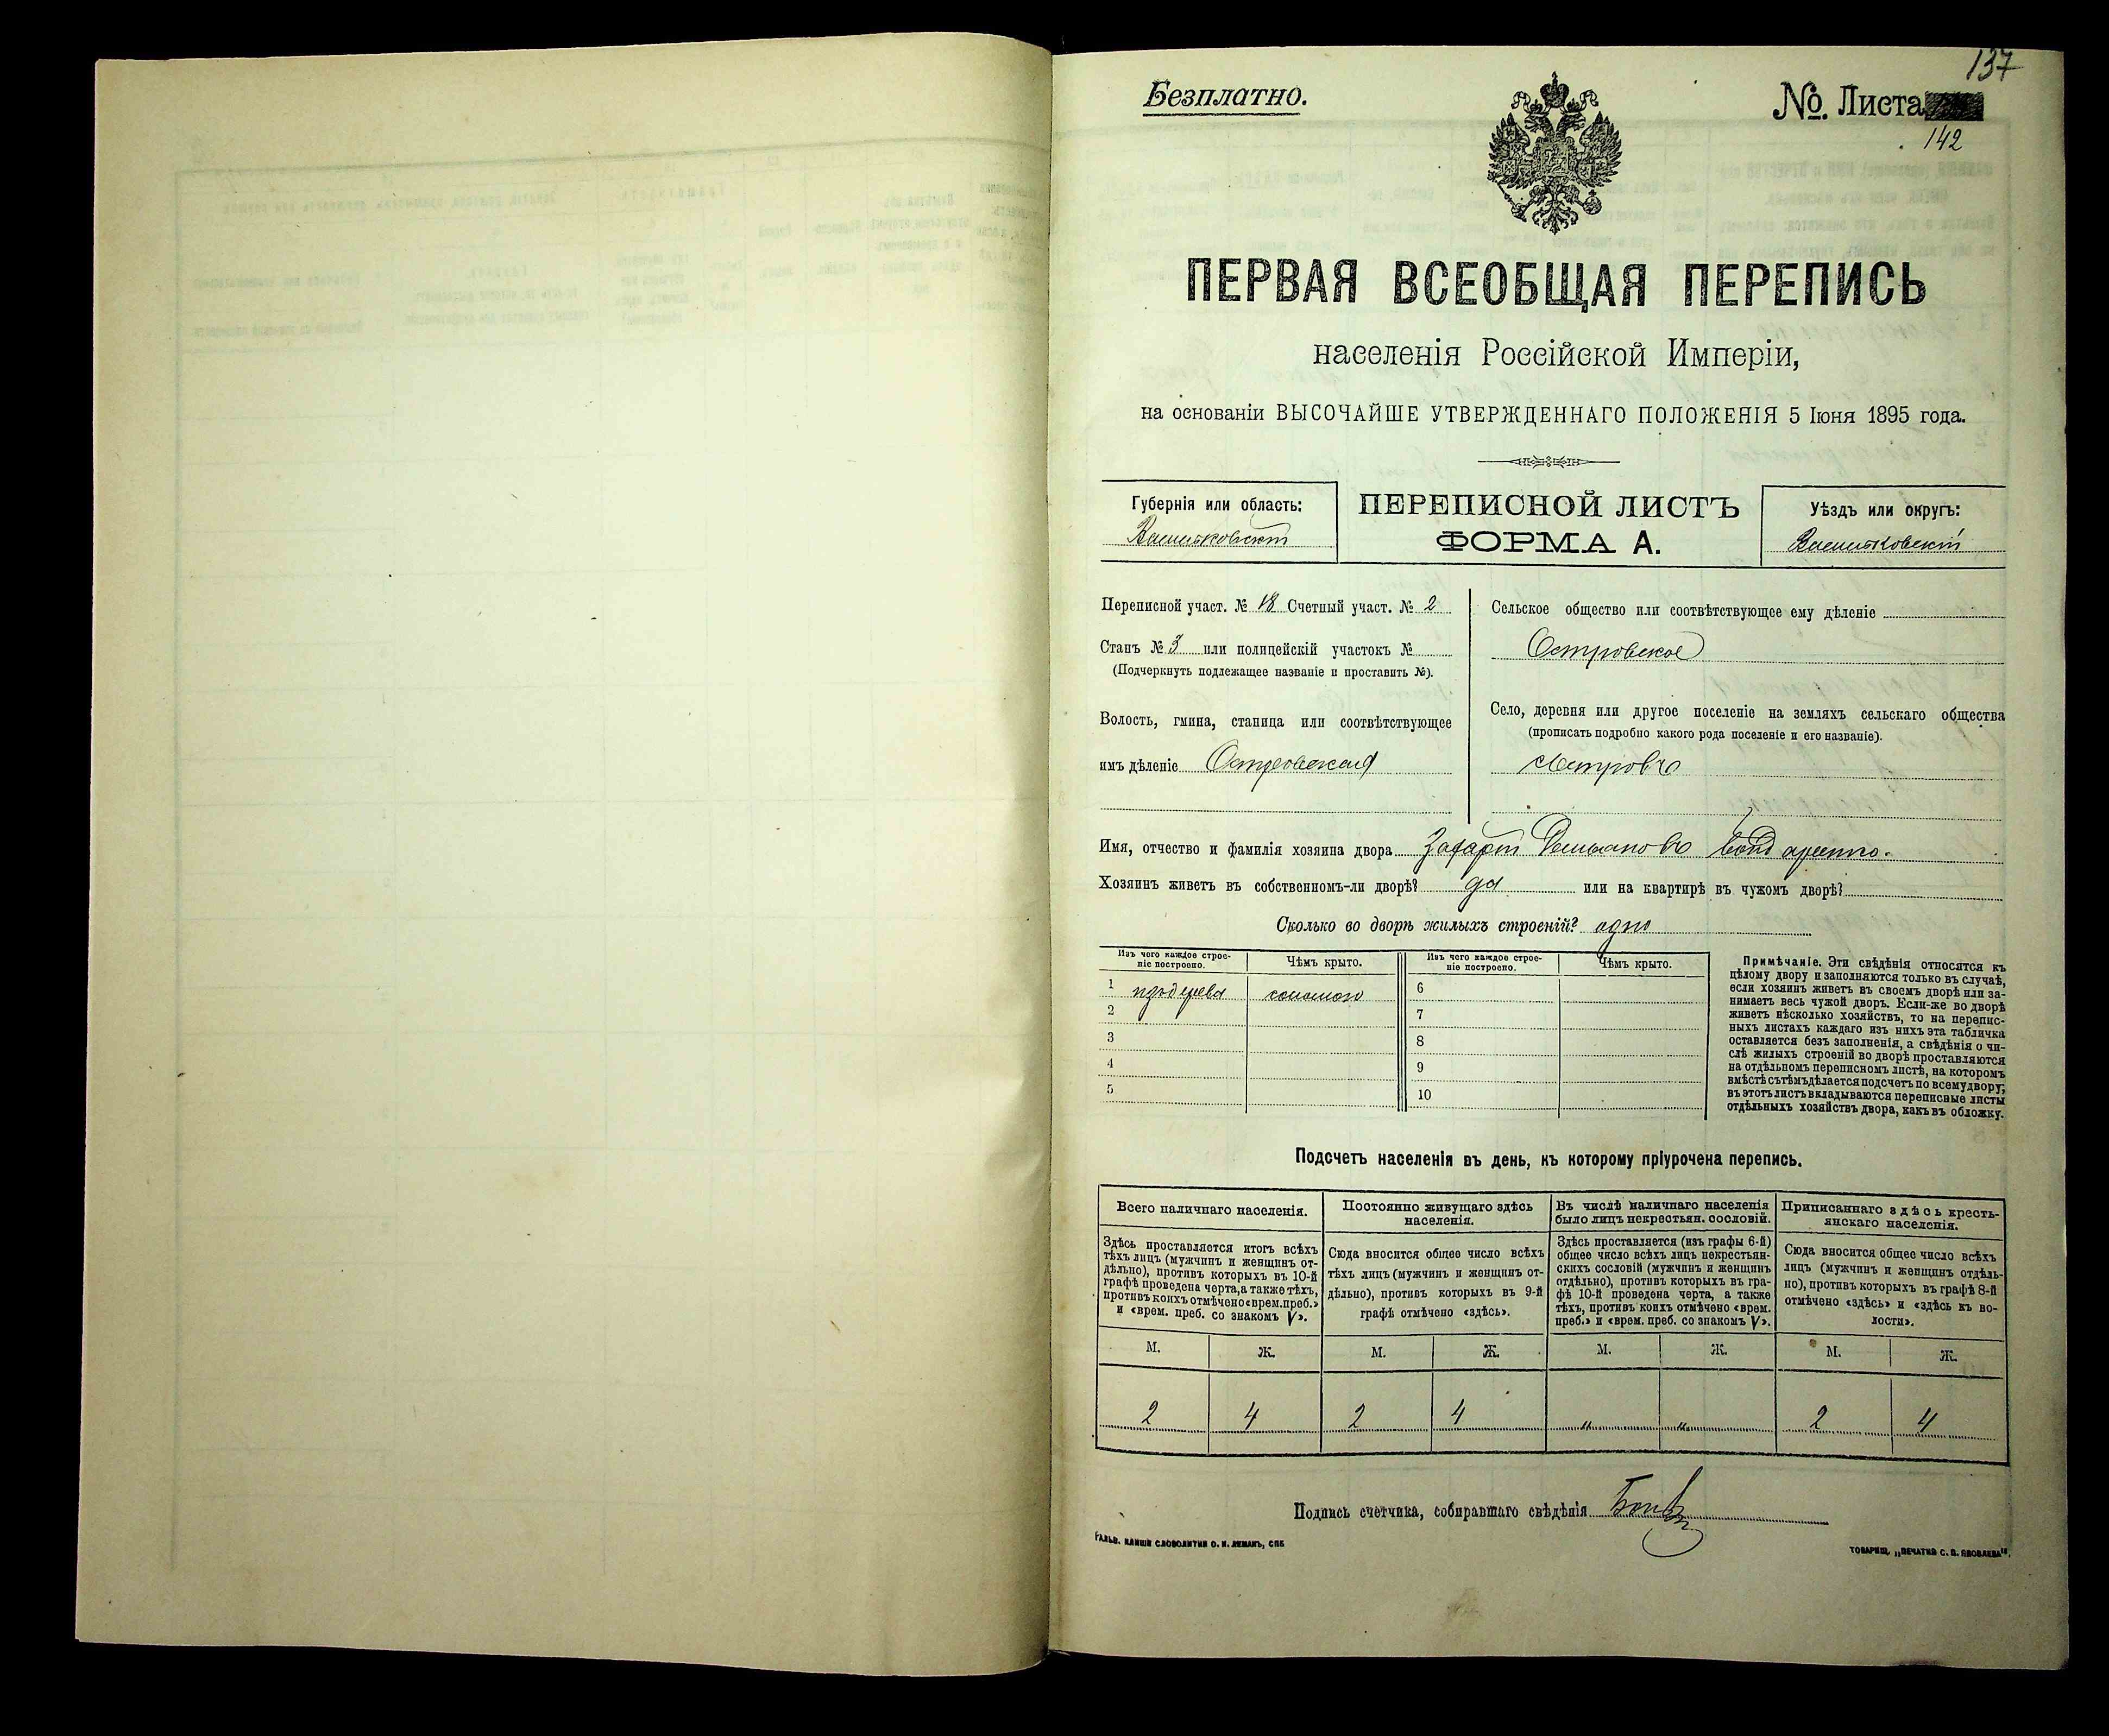 137
Безплатно.
№ Листа
142
ПЕРВАЯ ВСЕОБЩАЯ ПЕРЕПИСЬ
населенія Россійской Имперіи,
на основаніи ВЫСОЧАЙШЕ УТВЕРЖДЕННАГО ПОЛОЖЕНІЯ 5 Іюня 1895 года.
Губернія или область:
ПЕРЕПИСНОЙ ЛИСТЪ
ФОРМА А.
Уѣздъ или округъ:
Васильковскій
Переписной участ. № 18 Счетный участ. № 2
Станъ № 3 или полицейскій участокъ №
(Подчеркнуть подлежащее названіе и проставить №).
Волость, гмина, станица или соотвѣтствующее
имъ дѣленіе Островская
Сельское общество или соотвѣтствующее ему дѣленіе
Островское
Село, деревня или другое поселеніе на земляхъ сельскаго общества
(прописать подробно какого рода поселеніе и его названіе).
Островъ
Имя, отчество и фамилія хозяина двора Бондаренко.
Хозяинъ живетъ въ собственномъ-ли дворѣ? да или на квартирѣ въ чужомъ дворѣ?
Сколько во дворѣ жилыхъ строеній? одно
Изъ чего каждое строе-
ніе построено.
Чѣмъ крыто.
Изъ чего каждое строе-
ніе построено.
Чѣмъ крыто.
1 изъ дерева соломою 6
2 7
3 8
4 9
5 10
Примѣчаніе. Эти свѣдѣнія относятся къ
цѣлому двору и заполняются только въ случаѣ,
если хозяинъ живетъ въ своемъ дворѣ или за-
нимаетъ весь чужой дворъ. Если-же во дворѣ
живетъ нѣсколько хозяйствъ, то на перепис-
ныхъ листахъ каждаго изъ нихъ эта табличка
оставляется безъ заполненія, а свѣдѣнія о чи-
слѣ жилыхъ строеній во дворѣ проставляются
на отдѣльномъ переписномъ листѣ, на которомъ
вмѣстѣ съ тѣмъ дѣлается подсчетъ по всему двору;
въ этотъ листъ вкладываются переписные листы
отдѣльныхъ хозяйствъ двора, какъ въ обложку.
Подсчетъ населенія въ день, къ которому пріурочена перепись.
Всего наличнаго населенія.
Здѣсь проставляется итогъ всѣхъ
тѣхъ лицъ (мужчинъ и женщинъ от-
дѣльно), противъ которыхъ въ 10-й
графѣ проведена черта, а также тѣхъ,
противъ коихъ отмѣчено «врем. преб.»
и «врем. преб. со знакомъ V».
Постоянно живущаго здѣсь
населенія.
Сюда вносится общее число всѣхъ
тѣхъ лицъ (мужчинъ и женщинъ от-
дѣльно), противъ которыхъ въ 9-й
графѣ отмѣчено «здѣсь».
Въ числѣ наличнаго населенія
было лицъ некрестьян. сословій.
Здѣсь проставляется (изъ графы 6-й)
общее число всѣхъ лицъ некрестьян-
скихъ сословій (мужчинъ и женщинъ
отдѣльно), противъ которыхъ въ гра-
фѣ 10-й проведена черта, а также
тѣхъ, противъ коихъ отмѣчено «врем.
преб.» и «врем. преб. со знакомъ V».
Приписаннаго здѣсь кресть-
янскаго населенія.
Сюда вносится общее число всѣхъ
лицъ (мужчинъ и женщинъ отдѣль-
но), противъ которыхъ въ графѣ 8-й
отмѣчено «здѣсь» и «здѣсь къ во-
лости».
М. Ж. М. Ж. М. Ж. М. Ж.
2 4 2 4 " " 2 4
Подпись счетчика, собиравшаго свѣдѣнія
ГАЛЬВ. КЛИШЕ СЛОВОЛИТНИ О. И. ЛЕМАНЪ, СПБ
ТОВАРИЩ. „ПЕЧАТНЯ С. П. ЯКОВЛЕВА".